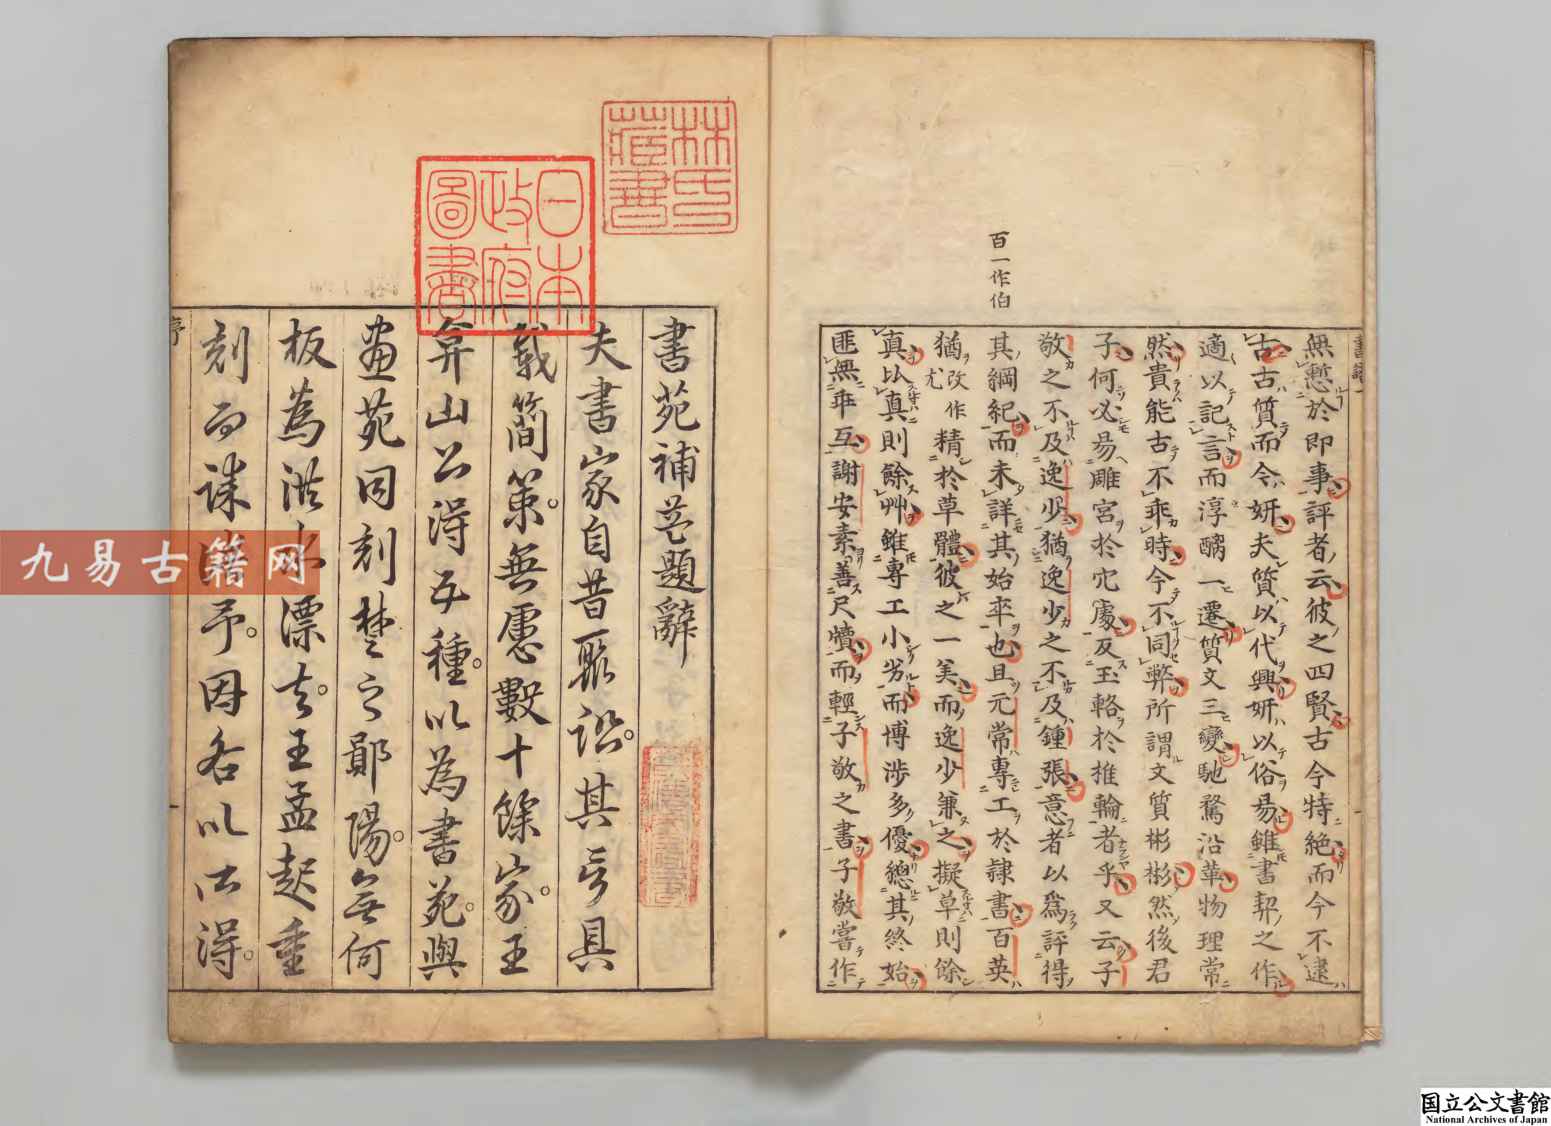 百一作伯
書譜
無慙於即事評者云彼之四賢古今特絶而今不逮
古古質而今妍夫質以代興妍以俗易雖書契之作
適以記言而淳醨一遷質文三變馳騖沿革物理常
然貴能古不乖時今不同弊所謂文質彬彬然後君
子何必易雕宮於穴處反玉輅於推輪者乎又云子
敬之不及逸少猶逸少之不及鍾張意者以爲評得
其綱紀而未詳其始卒也且元常專工於隷書百英
猶改作尤精於草體彼之一美而逸少兼之擬草則餘
真以真則餘艸雖專工小劣而博渉多優總其終始
匪無乖互謝安素善尺牘而輕子敬之書子敬嘗作
林氏藏書
日本政府圖書
書苑補益題辭
夫書家自昔聚訟。其言具
載簡策。無慮數十餘家。王
弇山公得五種。以為書苑。與
畫苑同刻楚之鄖陽。無何
板為洪水漂去。王孟起重
刻而謀予。因各以所得。
序
九易古籍网
国立公文書館
National Archives of Japan